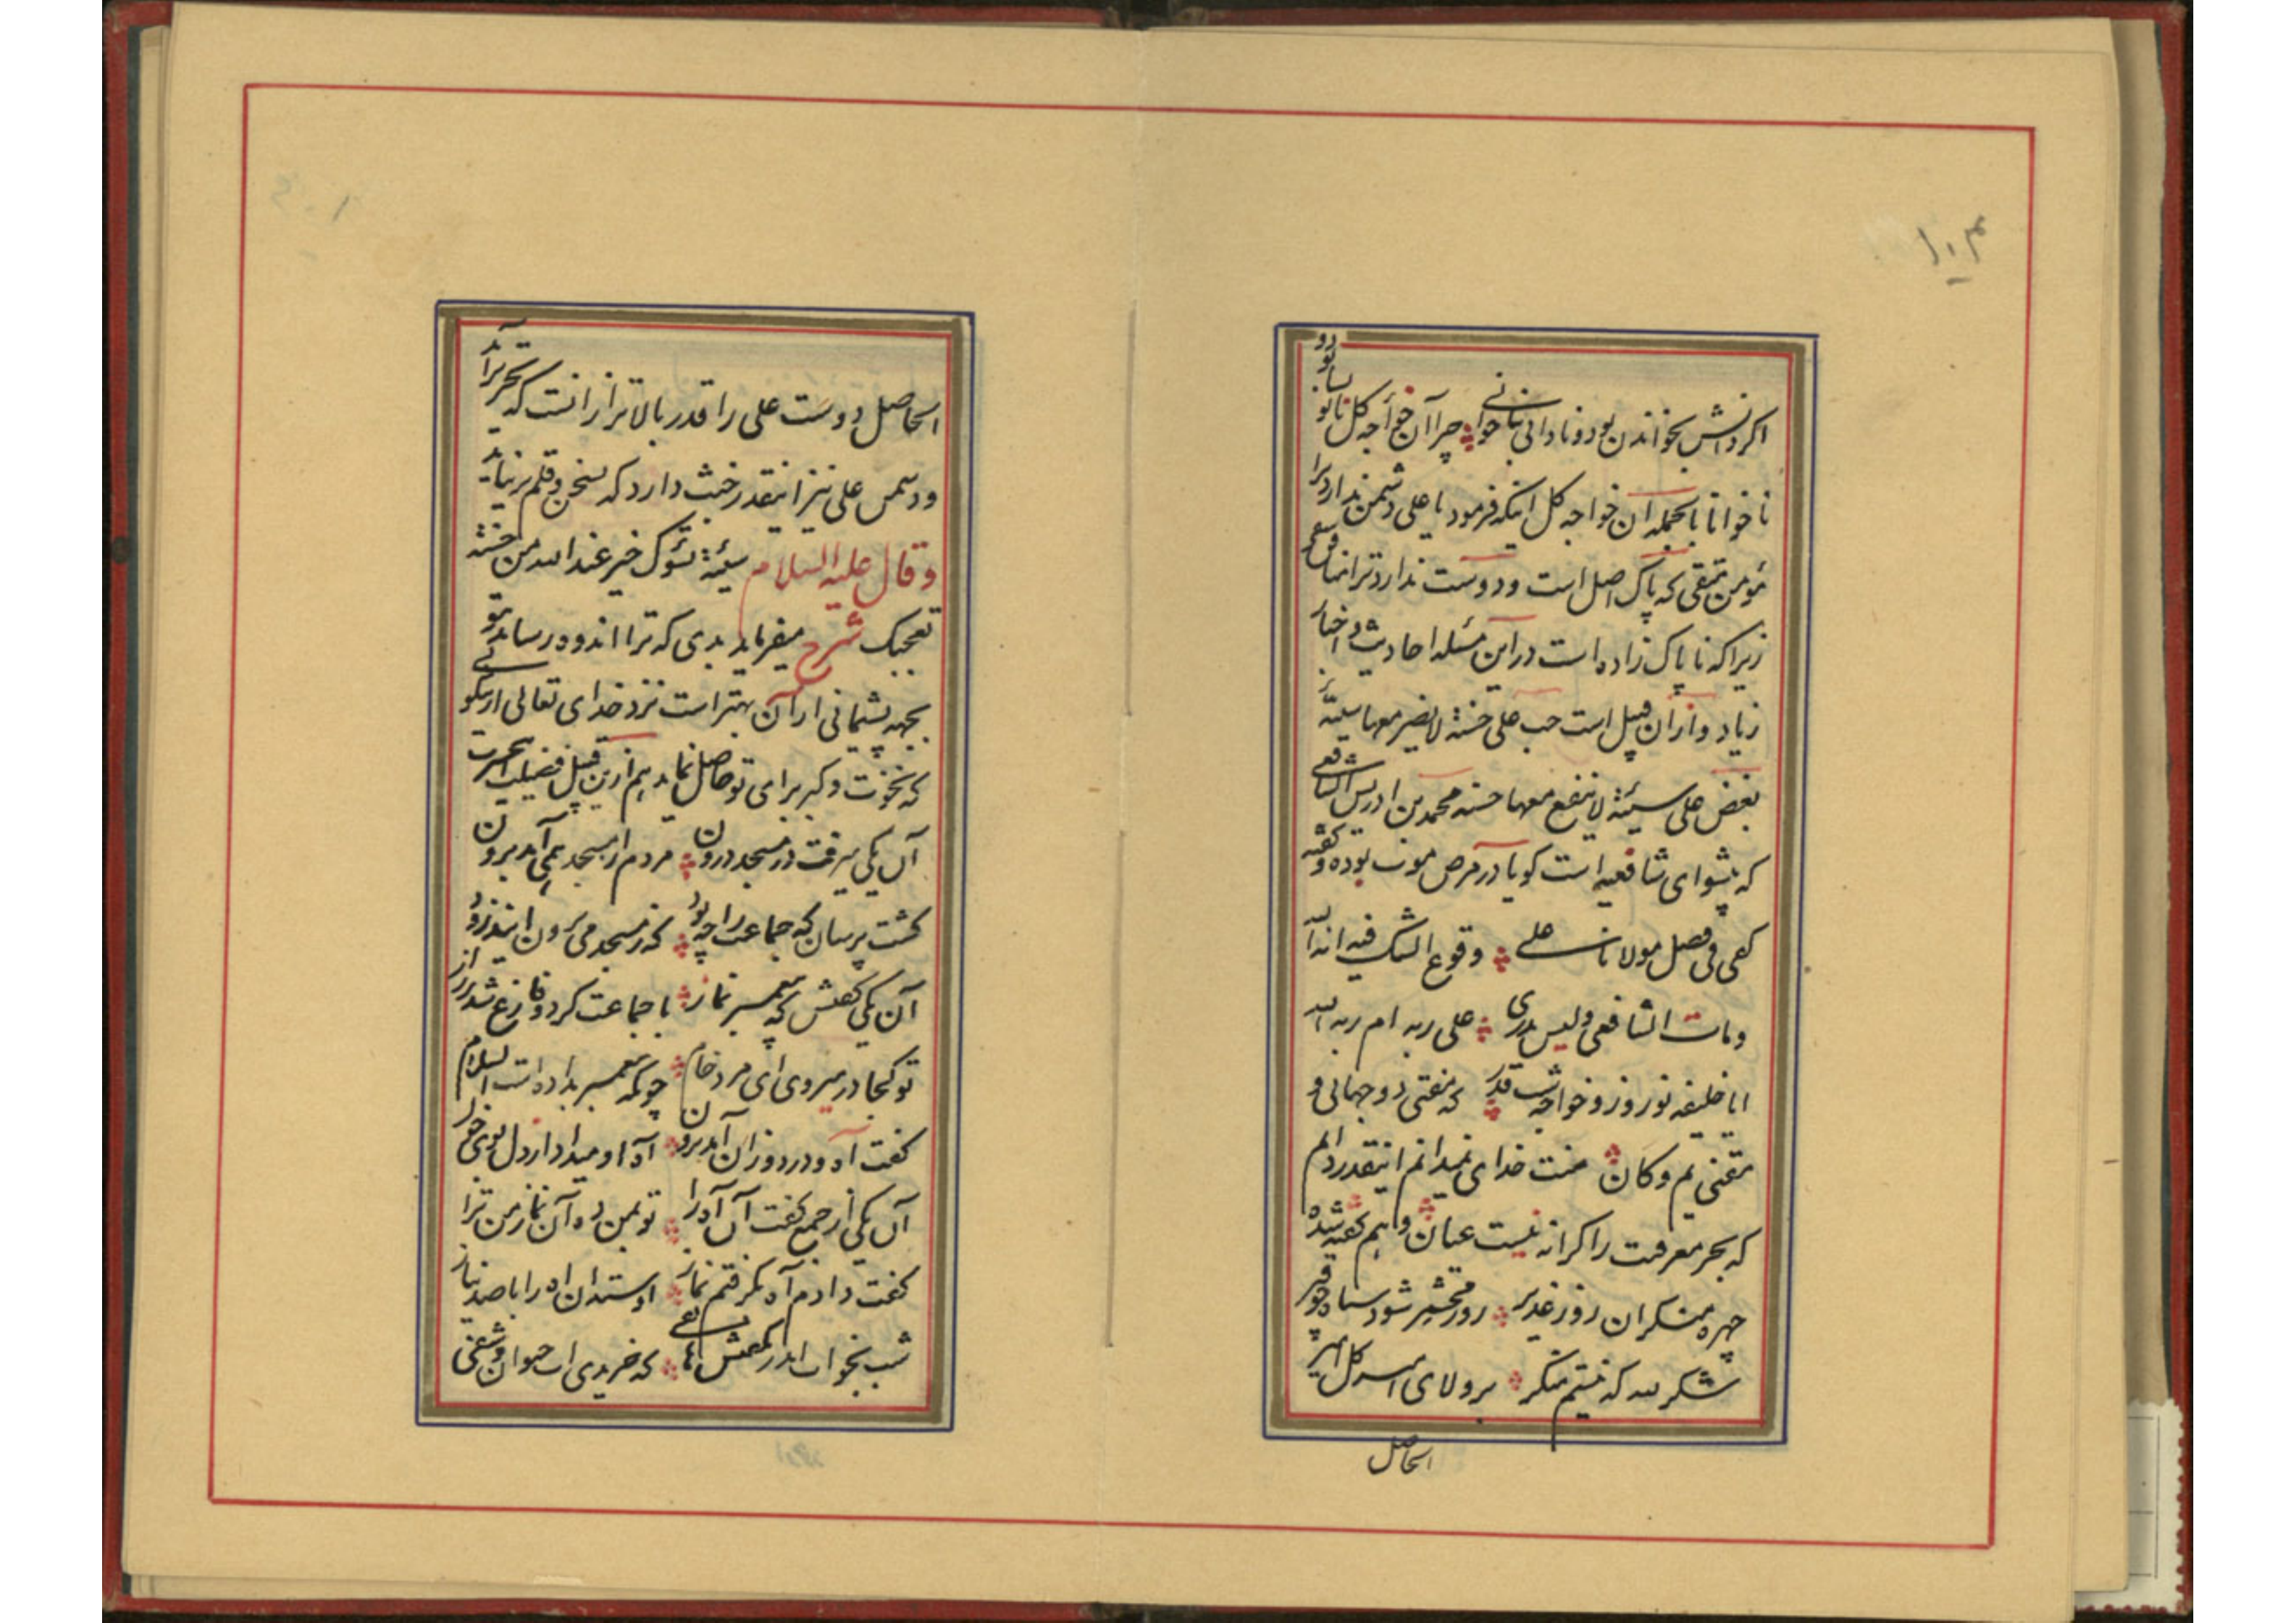 ۱۰۳
اگر دانش بخواندن بود و نادانی بناخوانی چرا آن خواجه کل نابود
ناخوانا بالجمله آن خواجه کل اینکه فرمود یا علی دشمن ندارد ترا
مؤمن متقی که پاک اصل است و دوست ندارد ترا منافق
زیرا که ناپاک زاده است در این مسئله احادیث و اخبار
زیاد و از آن قبیل است حب علی حسنة لا یضر معها سیئة
بغض علی سیئة لا ینفع معها حسنه محمد بن ادریس الشافعی
که پیشوای شافعیه است گویا در مرض موت بوده و گفته
کفی فی فضل مولانا علی وقوع الشک فیه انه الله
و مات الشافعی و لیس یدری علی ربه ام ربه الله
ایا خلیفه نوروز و خواجه شب قدر که مفتی دو جهانی و
مقنی یم و کان منت خدای نمیدانم اینقدر دانم
که بحر معرفت را کرانه نیست عیان و هم گفته شده
چهره منکران روز غدیر روز محشر شود سیاه چو قیر
شکر لله که نیستم منکر بر ولای امیر کل امیر
الحاصل
الحاصل دوست علی را قدر بالاتر از انست که بتحریر آید
و دشمن علی نیز اینقدر خبث دارد که بسخن و قلم بر نیاید
و قال علیه السلام سیئة تسوک خیر عند الله من حسنة
تعجبک شرح میفرماید بدی که ترا اندوه رساند تو
بجهه پشیمانی از آن بهتر است نزد خدای تعالی از نیکوئی
که نخوت و کبر برای تو حاصل نماید هم ازین قبیل فضیلت حسرت
آن یکی میرفت در مسجد درون مردم از مسجد همی آمد برون
گشت پرسان که جماعت را چه بود که ز مسجد می برون ایند زود
آن یکی گفتش که پیغمبر نماز با جماعت کرد و فارغ شد ز راز
تو کجا در میروی ای مرد خام چونکه پیغمبر بداده است السلام
گفت آه و درد از آن آمد برون آه او میداد از دل بوی خون
آن یکی از جمع گفت آن آه را تو بمن ده آن نماز من ترا
گفت دادم آه بگرفتم نماز او ستد ان اه را با صد نیاز
شب بخواب اندر بگفتش هاتفی که خریدی اب حیوان و شفی